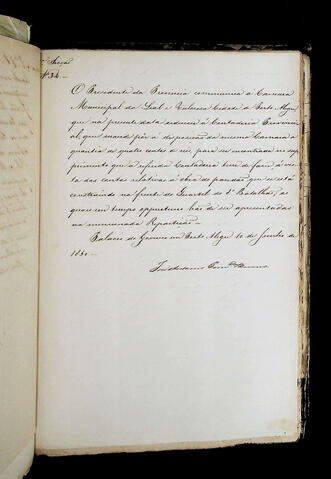 Secção
Nº 34
O Presidente da Provincia communica á Camara
Municipal da Leal e Valerosa Cidade de Porto Alegre
que na presente data ordenou á Contadoria Provinci-
al, que mande pôr á disposição da mesma Camara a
quantia de quatro contos de réis, para ser encontrada no sup-
primento que a referida Contadoria tem de fazer, á vis-
ta das contas relativas á obra do paredão que se está
construindo na frente do Quartel do 8º Batalhão, as
quaes em tempo opportuno hão de ser apresentadas
na mencionada Repartição.
Palacio do Governo em Porto Alegre 10 de Junho de